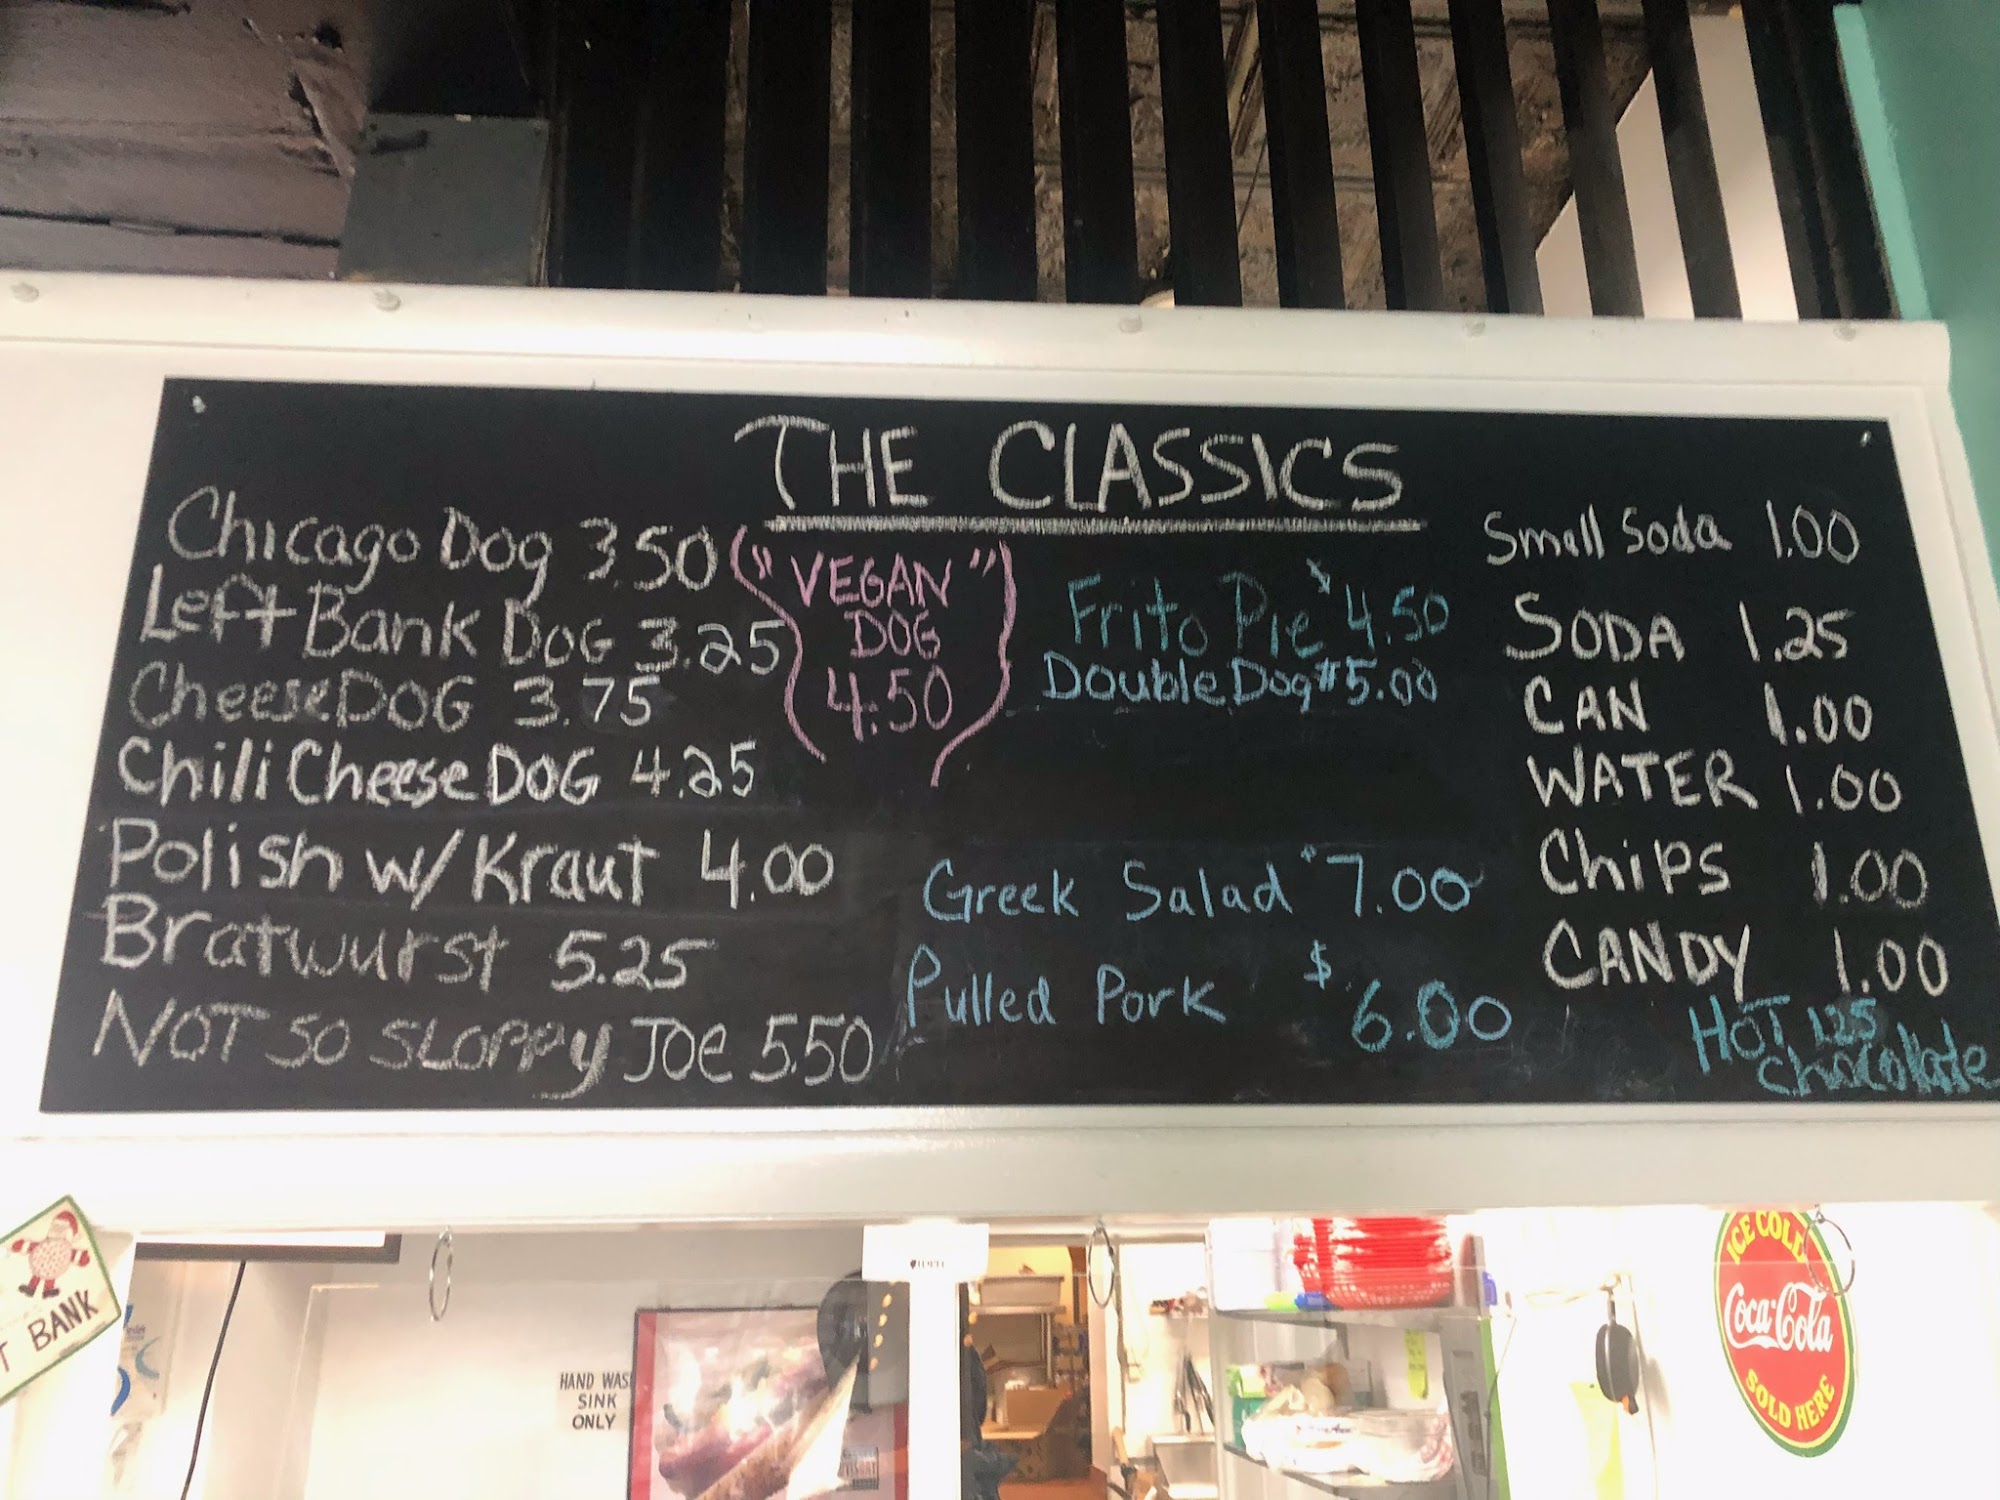 THE CLASSICS
Chicago Dog 3.50
Left Bank DOG 3.25
Cheese DOG 3.75
Chili Cheese DOG 4.25
Polish w/ Kraut 4.00
Bratwurst 5.25
NOT SO SLOPPY JOE 5.50
"VEGAN"
DOG
4.50
Frito Pie $4.50
Double Dog $5.00
Greek Salad $7.00
Pulled Pork $6.00
Small Soda 1.00
SODA 1.25
CAN 1.00
WATER 1.00
Chips 1.00
CANDY 1.00
HOT 1.25
Chocolate
T BANK
HAND WAS
SINK
ONLY
ICE COLD
Coca-Cola
SOLD HERE